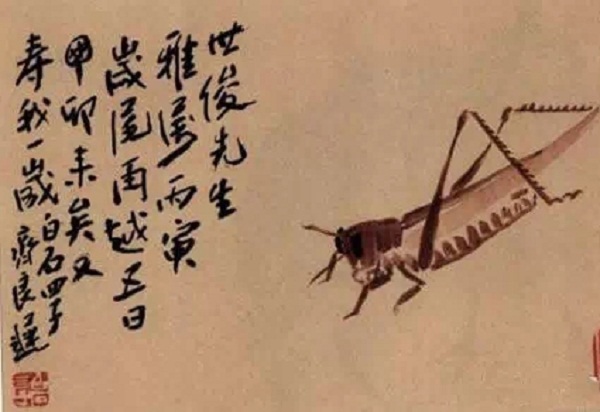 世俊先生
雅属丙寅
歲尾再越五日
卯来矣又
寿我一歲
白石四子
齊良遲